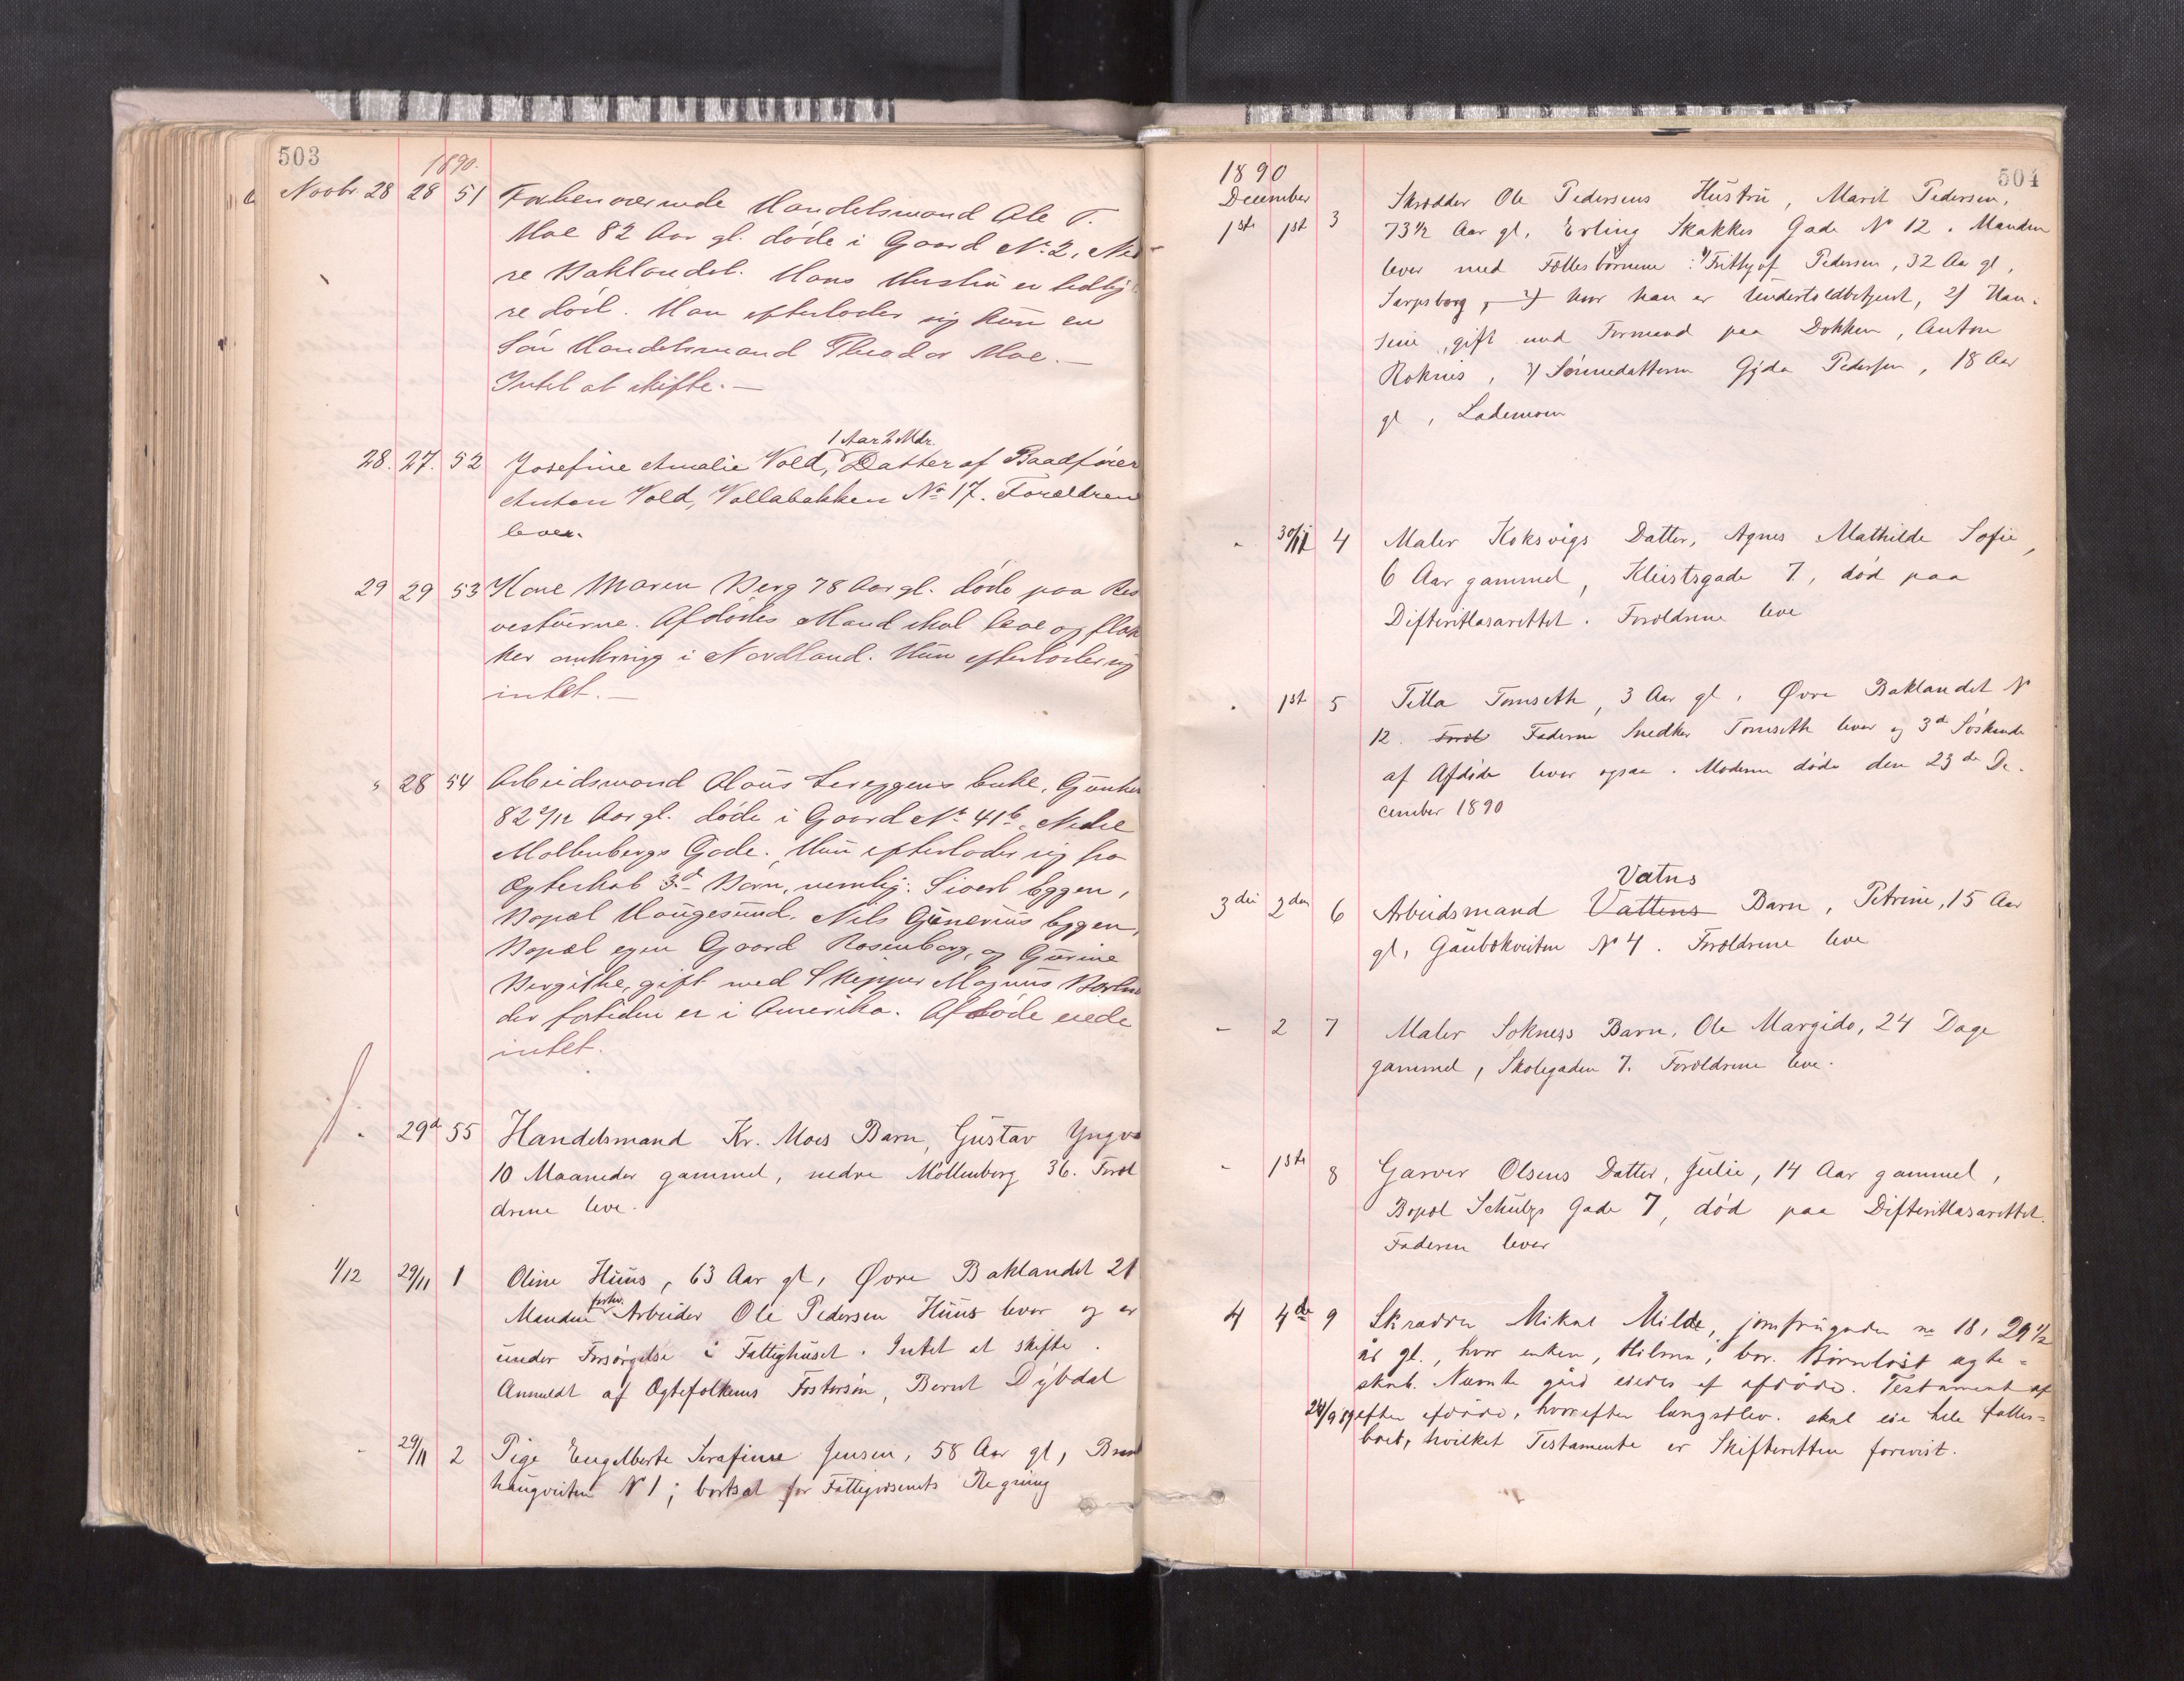 503
1890.
Novbr 28 28 51 Forhenværende Handelsmand Ole T.
Moe 82 Aar gl. døde i Gaard No 2, Ned
re Baklandet. Hans Hustru er tidlig
re død. Han efterlader sig kun en
Søn Handelsmand Theodor Moe. —
Intet at skifte. —
1 Aar 2 Mdr.
28. 27. 52 Josefine Amalie Vold, Datter af Baadfører
Anton Vold, Vollabakken No 17. Forældrene
lever.
29 29 53 Kone Maren Berg 78 Aar gl. døde paa Rea
vestuerne. Afdødes Mand skal leve og flak
ker omkring i Nordland. Hun efterlader sig
intet. —
" 28 54 Arbeidsmand Olaus Enke,
82 Aar gl. døde i Gaard No 41b Nedre
Møllenbergs Gade. Hun efterlader sig fra
Ægteskab 3de Børn, nemlig: Sivert Eggen,
Bopæl Haugesund, Nils Gunerius Eggen,
Bopæl egen Gaard Rosenborg, og Gurine
Birgithe, gift med Skipper Magnus
der fortiden er i Amerika. Afdøde eiede
intet.
" 29d 55 Handelsmand Kr. Moes Barn, Gustav Yngva
10 Maaneder gammel, nedre Møllenberg 36. Foræl
drene leve.
1/12 29/11 1 Oline Huus, 63 Aar gl, Øvre Baklandet 21
forhv.
Manden Arbeider Ole Pedersen Huus lever og er
under Forsørgelse i Fattighuset. Intet at skifte.
Anmeldt af Ægtefolkenes Fostersøn, Bernt Dybdal
- 29/11 2 Pige Engelberte Serafine Jensen, 58 Aar gl,
haugveiten N 1; bortsat for Fattigvæsenets Regning
1890
504
December
1ste 1st 3 Skrædder Ole Pedersens Hustru, Marit Pedersen,
73½ Aar gl, Erling Skakkes Gade No 12. Manden
lever med Fællesbørnene: 1) Frithjof Pedersen, 32 Aar gl,
Sarpsborg, 2) hvor han er Undertoldbetjent, 2) Han-
sine, gift med Formand paa Dokken, Anton
Roknes, 3) Sønnedatteren Gyda Pedersen, 18 Aar
gl, Lademoen
- 30/11 4 Maler Koksvigs Datter, Agnes Mathilde Sofie,
6 Aar gammel, Kleistsgade 7, død paa
Difteritlasarettet. Forældrene leve
- 1st 5 Tilla Tomseth, 3 Aar gl, Øvre Baklandet N
12. Foræl Faderen Snedker Tomseth lever og 3d Søskende
af Afdøde lever ogsaa. Moderen døde den 23de De-
cember 1890
Vatns
3die 2den 6 Arbeidsmand Vattens Barn, Petrine, 15 Aar
gl, Gaubækveiten N 4. Forældrene leve
- 2 7 Maler Soknes's Barn, Ole Margido, 24 Dage
gammel, Skolegaden 7. Forældrene leve.
- 1ste 8 Garver Olsens Datter, Julie, 14 Aar gammel,
Bopæl Schultz Gade 7, død paa Difteritlasarettet.
Faderen lever
4 4de 9 Skrædder Mikal Milde, jomfrugaden no 18, 29½
år gl., hvor enken, Hilma, bor. Børnløst ægte-
skab. Nævnte gård eiedes af afdøde. Testament af
24/9 89 efter afdøde, hvorefter længstlev. skal eie hele fælles-
boet, hvilket Testamente er Skifteretten forevist.